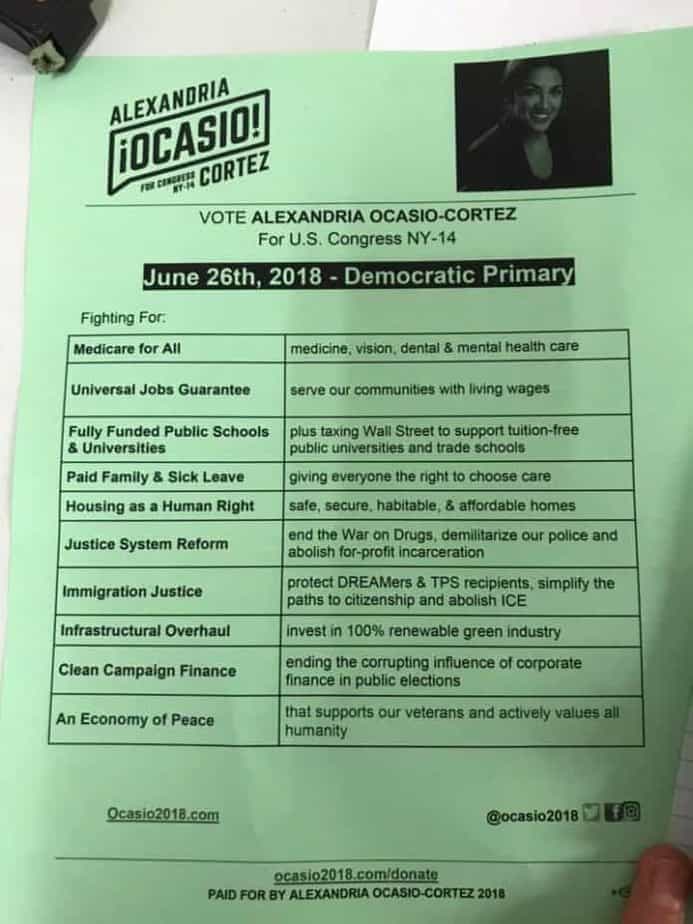 ALEXANDRIA
¡OCASIO!
FOR CONGRESS
NY-14
CORTEZ
VOTE ALEXANDRIA OCASIO-CORTEZ
For U.S. Congress NY-14
June 26th, 2018 - Democratic Primary
Fighting For:
Medicare for All
medicine, vision, dental & mental health care
Universal Jobs Guarantee
serve our communities with living wages
Fully Funded Public Schools
& Universities
plus taxing Wall Street to support tuition-free
public universities and trade schools
Paid Family & Sick Leave
giving everyone the right to choose care
Housing as a Human Right
safe, secure, habitable, & affordable homes
Justice System Reform
end the War on Drugs, demilitarize our police and
abolish for-profit incarceration
Immigration Justice
protect DREAMers & TPS recipients, simplify the
paths to citizenship and abolish ICE
Infrastructural Overhaul
invest in 100% renewable green industry
Clean Campaign Finance
ending the corrupting influence of corporate
finance in public elections
An Economy of Peace
that supports our veterans and actively values all
humanity
Ocasio2018.com
@ocasio2018
ocasio2018.com/donate
PAID FOR BY ALEXANDRIA OCASIO-CORTEZ 2018